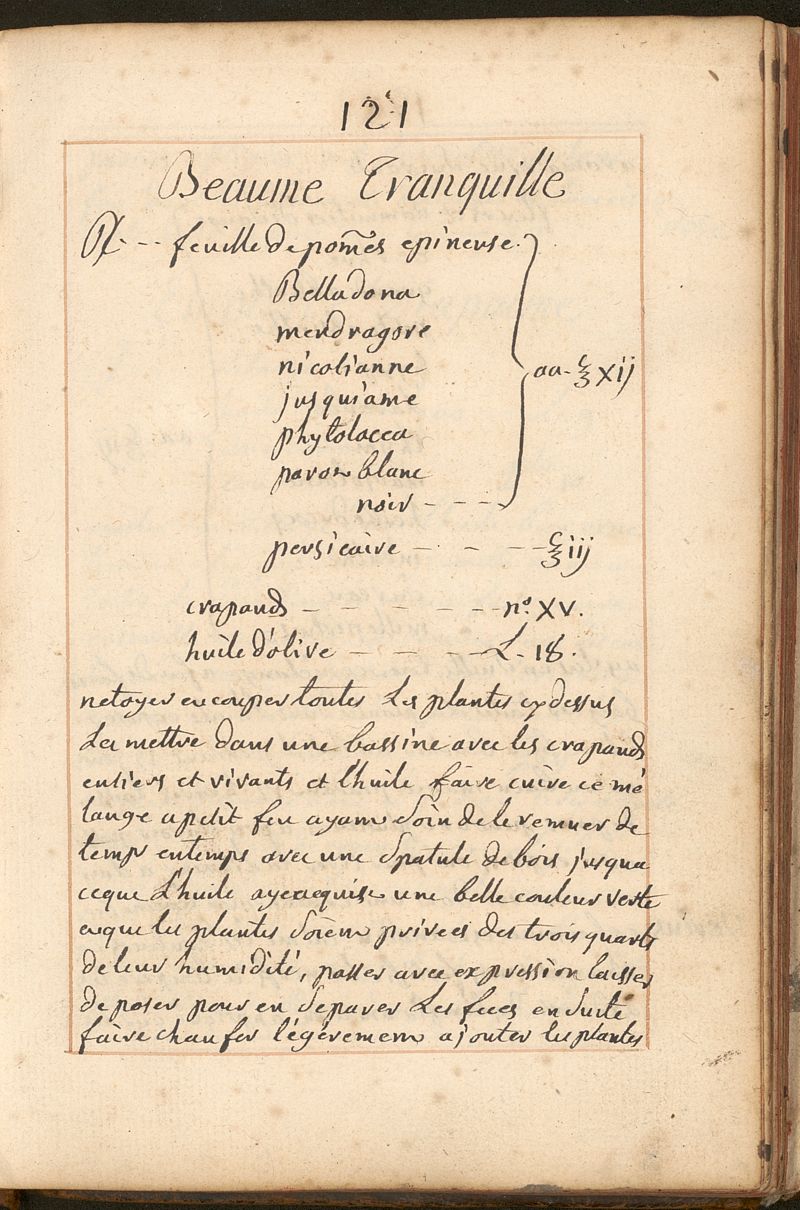 121
Beaume Tranquille
℞ - - feuille de pom̃es epineuse
Belladona
mendragore
nicotianne
jusquiame
phytolacca
pavot blanc
noir - - - aa - ℥ xij
persicaire - - - ℥ iij
crapauds - - - - - - nº. XV.
huile d'olive - - - - L - 18.
netoyer en couper toutes Les plantes cy dessus
Les mettre dans une bassine avec les crapauds
entiers et vivants et l'huile faire cuire ce mé
lange a petit feu ayam Soin de le remuer de
temp en temps avec une Spatule de bois jusqua
ceque L'huile aye acquise une belle couleur verte
en que les plantes Soiem privées des trois quarts
de leur humidité, passer avec expression laisser
deposer pour en Separer Les feces en Suite
faire chaufer légéremem ajouter les plantes